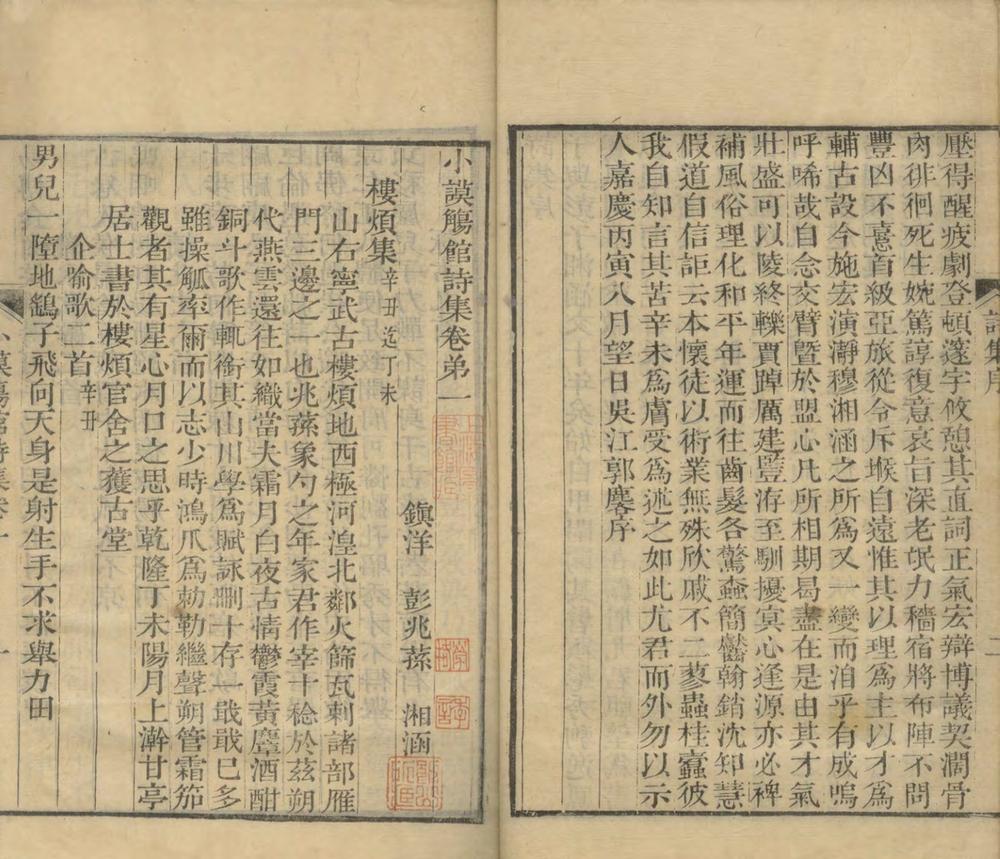 壓得醒疲劇登頓邃宇攸憩其直詞正氣宏辯博議契濶骨
肉徘徊死生婉篤諄復意哀旨深老氓力穡宿將布陣不問
豐凶不憙首級亞旅從令斥堠自遠惟其以理爲主以才爲
輔古設今施宏演瀞穆湘涵之所爲又一變而洎乎有成嗚
呼唏哉自念交臂暨於盟心凡所相期曷盡在是由其才氣
壯盛可以陵終轢賈踔厲建豎洊至馴擾冥心逢源亦必裨
補風俗理化和平年運而往齒髮各驚蚉簡豔翰銷沈知慧
假道自信詎云本懷徒以術業無殊欣戚不二蓼蟲桂蠹彼
我自知言其苦辛未爲膚受爲述之如此尤君而外勿以示
人嘉慶丙寅八月望日吳江郭麐序
詩集序
二
小謨觴館詩集卷弟一
鎭洋 彭兆蓀 湘涵
樓煩集 辛丑迄丁未
山右寧武古樓煩地西極河湟北鄰火篩瓦剌諸部雁
門三邊之一也兆蓀象勺之年家君作宰十稔於茲朔
代燕雲還往如織當夫霜月白夜古情鬱霞黃麞酒酣
銅斗歌作輒銜其山川學爲賦詠删十存一戢戢已多
雖操觚率爾而以志少時鴻爪爲勑勒繼聲朔管霜笳
觀者其有星心月口之思乎乾隆丁未陽月上澣甘亭
居士書於樓煩官舍之蒦古堂
企喻歌二首 辛丑
男兒一墮地鷂子飛向天身是射生手不求舉力田
小謨觴館詩集卷一
一